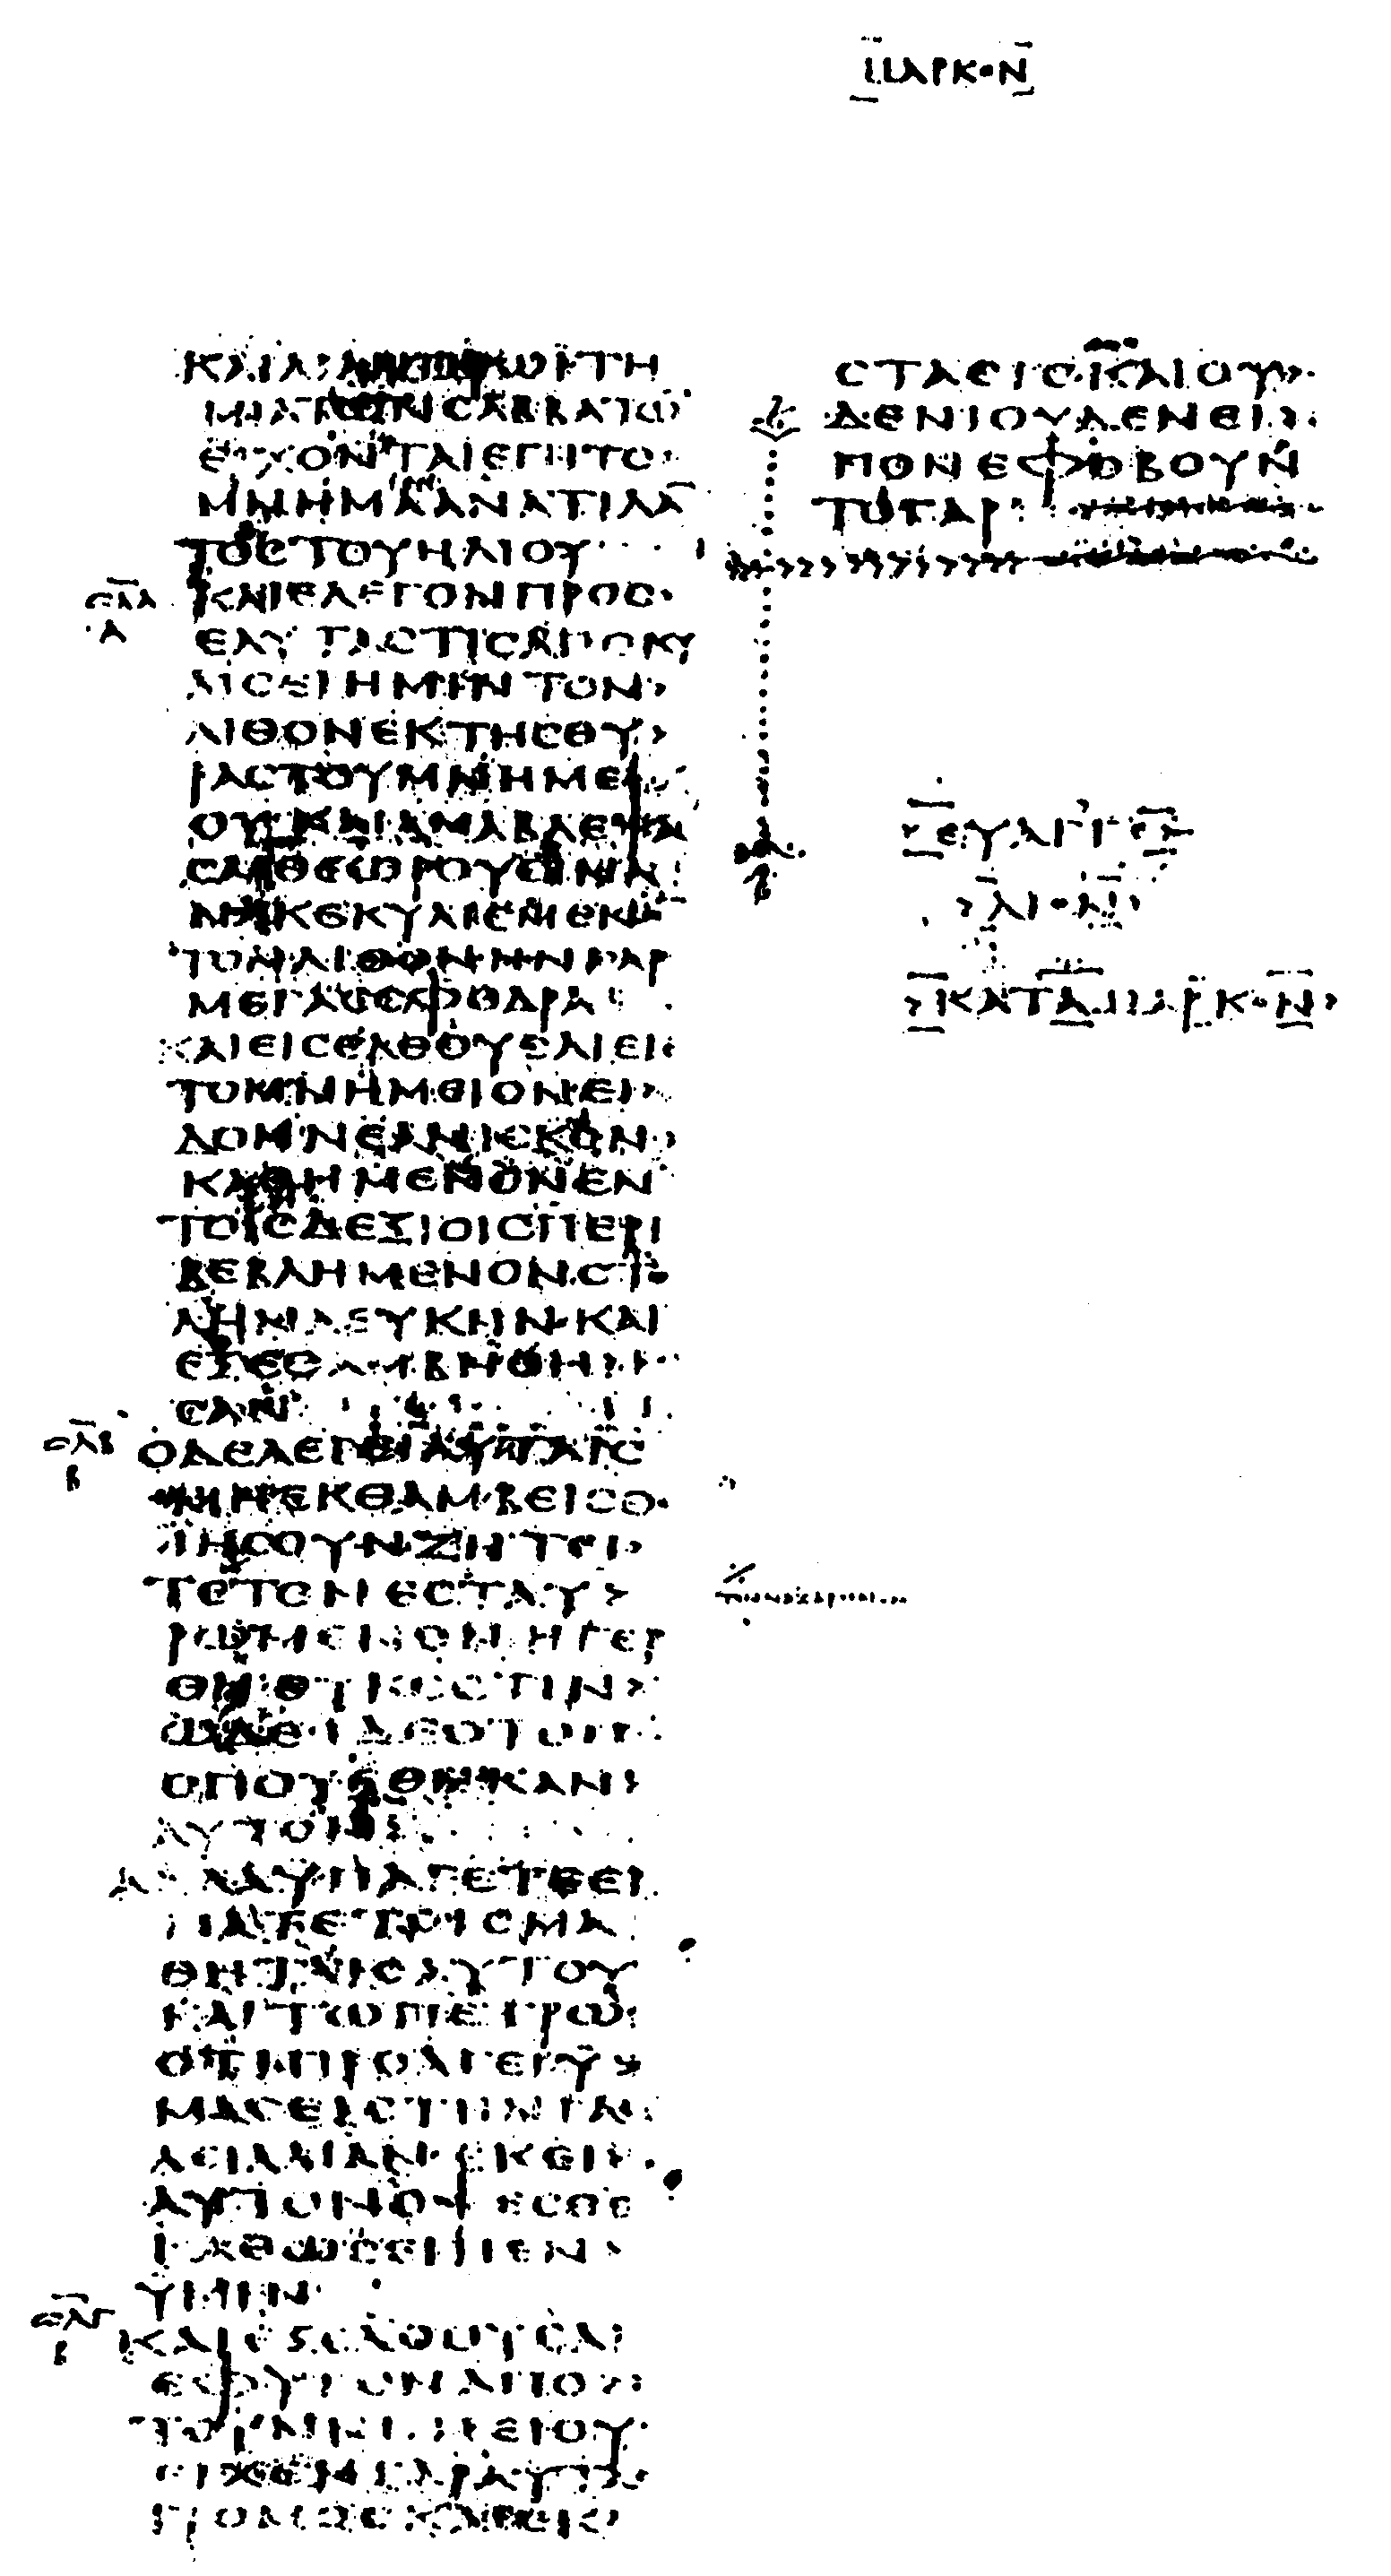 ΜΑΡΚΟΝ
ΚΑΙ ΛΙΑΝ ΠΡΩΙ ΤΗ
ΜΙΑ ΤΩΝ ΣΑΒΒΑΤΩ
ΕΡΧΟΝΤΑΙ ΕΠΙ ΤΟ
ΜΝΗΜΑ ΑΝΑΤΙΛΑ
ΤΟΣ ΤΟΥ ΗΛΙΟΥ
ΣΛΑ
Α
ΚΑΙ ΕΛΕΓΟΝ ΠΡΟΣ
ΕΑΥΤΑΣ ΤΙΣ ΑΠΟΚΥ
ΛΙΣΕΙ ΗΜΙΝ ΤΟΝ
ΛΙΘΟΝ ΕΚ ΤΗΣ ΘΥ
ΡΑΣ ΤΟΥ ΜΝΗΜΕΙ
ΟΥ ΚΑΙ ΑΝΑΒΛΕΨΑ
ΣΑΙ ΘΕΩΡΟΥΣΙΝ Α
ΝΑΚΕΚΥΛΙΣΜΕΝΟ
ΤΟΝ ΛΙΘΟΝ ΗΝ ΓΑΡ
ΜΕΓΑΣ ΣΦΟΔΡΑ
ΚΑΙ ΕΙΣΕΛΘΟΥΣΑΙ ΕΙΣ
ΤΟ ΜΝΗΜΕΙΟΝ ΕΙ
ΔΟΝ ΝΕΑΝΙΣΚΟΝ
ΚΑΘΗΜΕΝΟΝ ΕΝ
ΤΟΙΣ ΔΕΞΙΟΙΣ ΠΕΡΙ
ΒΕΒΛΗΜΕΝΟΝ ΣΤΟ
ΛΗΝ ΛΕΥΚΗΝ ΚΑΙ
ΕΞΕΘΑΜΒΗΘΗ
ΣΑΝ
ΣΛΒ
Β
Ο ΔΕ ΛΕΓΕΙ ΑΥΤΑΙΣ
ΜΗ ΕΚΘΑΜΒΕΙΣΘΕ
ΙΗΣΟΥΝ ΖΗΤΕΙ
ΤΕ ΤΟΝ ΕΣΤΑΥ
ΡΩΜΕΝΟΝ ΗΓΕΡ
ΘΗ ΟΥΚ ΕΣΤΙΝ
ΩΔΕ ΙΔΕ Ο ΤΟΠΟΣ
ΟΠΟΥ ΕΘΗΚΑΝ
ΑΥΤΟΝ
ΑΛΛΑ ΥΠΑΓΕΤΕ ΕΙ
ΠΑΤΕ ΤΟΙΣ ΜΑ
ΘΗΤΑΙΣ ΑΥΤΟΥ
ΚΑΙ ΤΩ ΠΕΤΡΩ
ΟΤΙ ΠΡΟΑΓΕΙ Υ
ΜΑΣ ΕΙΣ ΤΗΝ ΓΑ
ΛΕΙΛΑΙΑΝ ΕΚΕΙ
ΑΥΤΟΝ ΟΨΕΣΘΕ
ΚΑΘΩΣ ΕΙΠΕΝ
ΥΜΙΝ
ΣΛΓ
Β
ΚΑΙ ΕΞΕΛΘΟΥΣΑΙ
ΕΦΥΓΟΝ ΑΠΟ
ΤΟΥ ΜΝΗΜΕΙΟΥ
ΕΙΧΕΝ ΓΑΡ ΑΥΤΑΣ
ΤΡΟΜΟΣ ΚΑΙ ΕΚ
ΣΤΑΣΙΣ ΚΑΙ ΟΥ
ΔΕΝΙ ΟΥΔΕΝ ΕΙ
ΠΟΝ ΕΦΟΒΟΥΝ
ΤΟ ΓΑΡ
ΕΥΑΓΓΕ
ΛΙΟΝ
ΚΑΤΑ ΜΑΡΚΟΝ